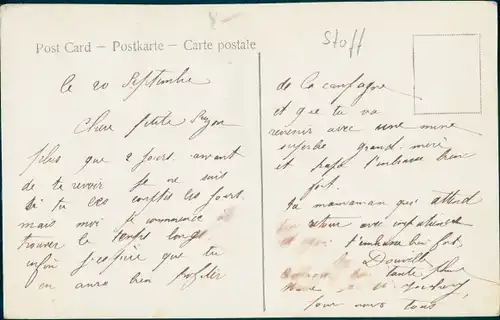 8-
Stoff
Post Card – Postkarte – Carte postale
le 20 Septembre
Chere petite Suzon
plus que 2 jours avant
de te revoir je ne sais
si tu as comptes les jours
mais moi je commence a
trouver le temps long
enfin j'espère que tu
en auras bien profiter
de la campagne
et que tu va
revenir avec une mine
superbe grand mère
et papa t'embrasse bien
fort.
ta maman qui attend
ton retour avec impatience
et t'embrasse bien fort
tante
pour nous tous